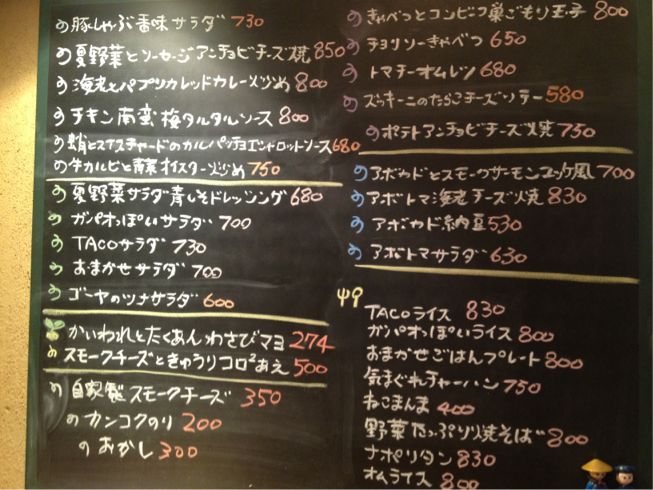 の豚しゃぶ香味サラダ 730
の夏野菜とソーセージアンチョビチーズ焼 850
の海老とパプリカレッドカレー炒め 800
のチキン南蛮 梅タルタルソース 800
の蛸とスイスチャードのカルパッチョ 680
の牛カルビと青菜オイスター炒め 750
の夏野菜サラダ青じそドレッシング 680
のガパオっぽいサラダ 700
のTACOサラダ 730
のおまかせサラダ 700
のゴーヤのツナサラダ 600
かいわれとたくあんわさびマヨ 274
のスモークチーズときゅうりコロコロあえ 500
の自家製スモークチーズ 350
のカンコクのり 200
のおかし 300
のきゃべつとコンビーフ巣ごもり玉子 800
のチョリソーきゃべつ 650
のトマチーオムレツ 680
のズッキーニのたらこチーズソテー 580
のポテトアンチョビチーズ焼 750
のアボカドとスモークサーモンユッケ風 700
のアボトマ海老チーズ焼 830
のアボカド納豆 530
のアボトマサラダ 630
TACOライス 830
ガパオっぽいライス 800
おまかせごはんプレート 800
気まぐれチャーハン 750
ねこまんま 400
野菜たっぷり焼そば 800
ナポリタン 830
オムライス 800